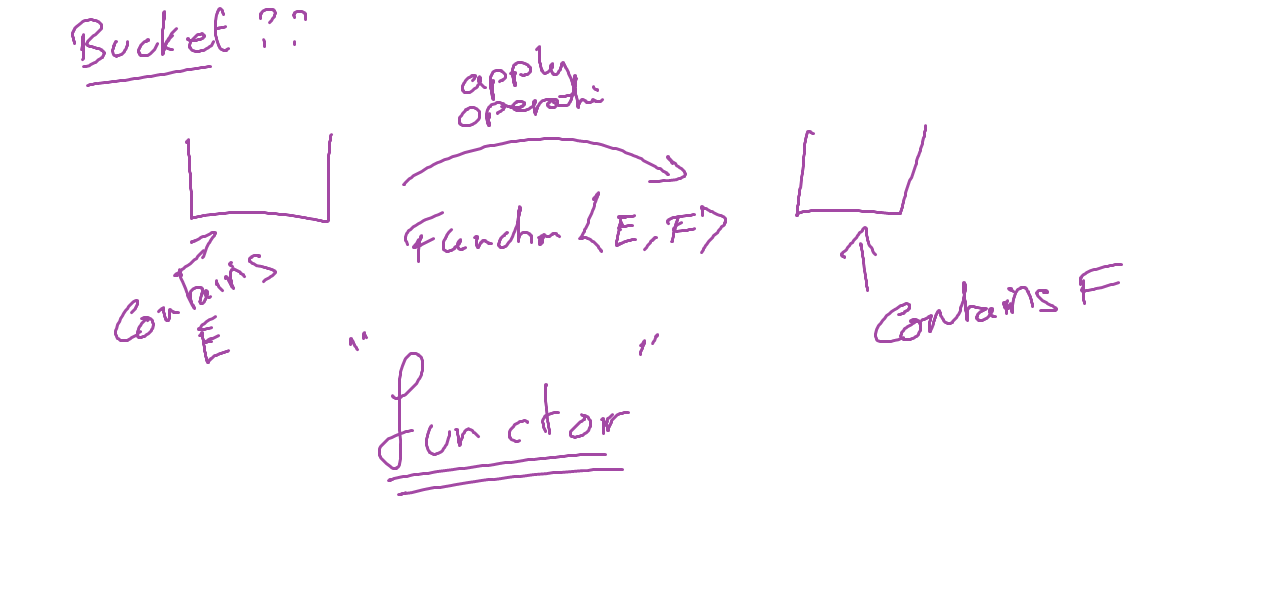 Bucket ??
apply
operati
Function <E, F>
Contains
E
Contains F
"functor"